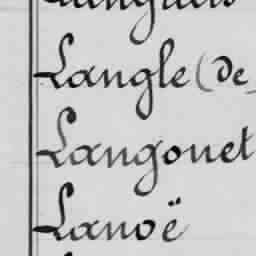 Langle (de
Langonet
Lanoë